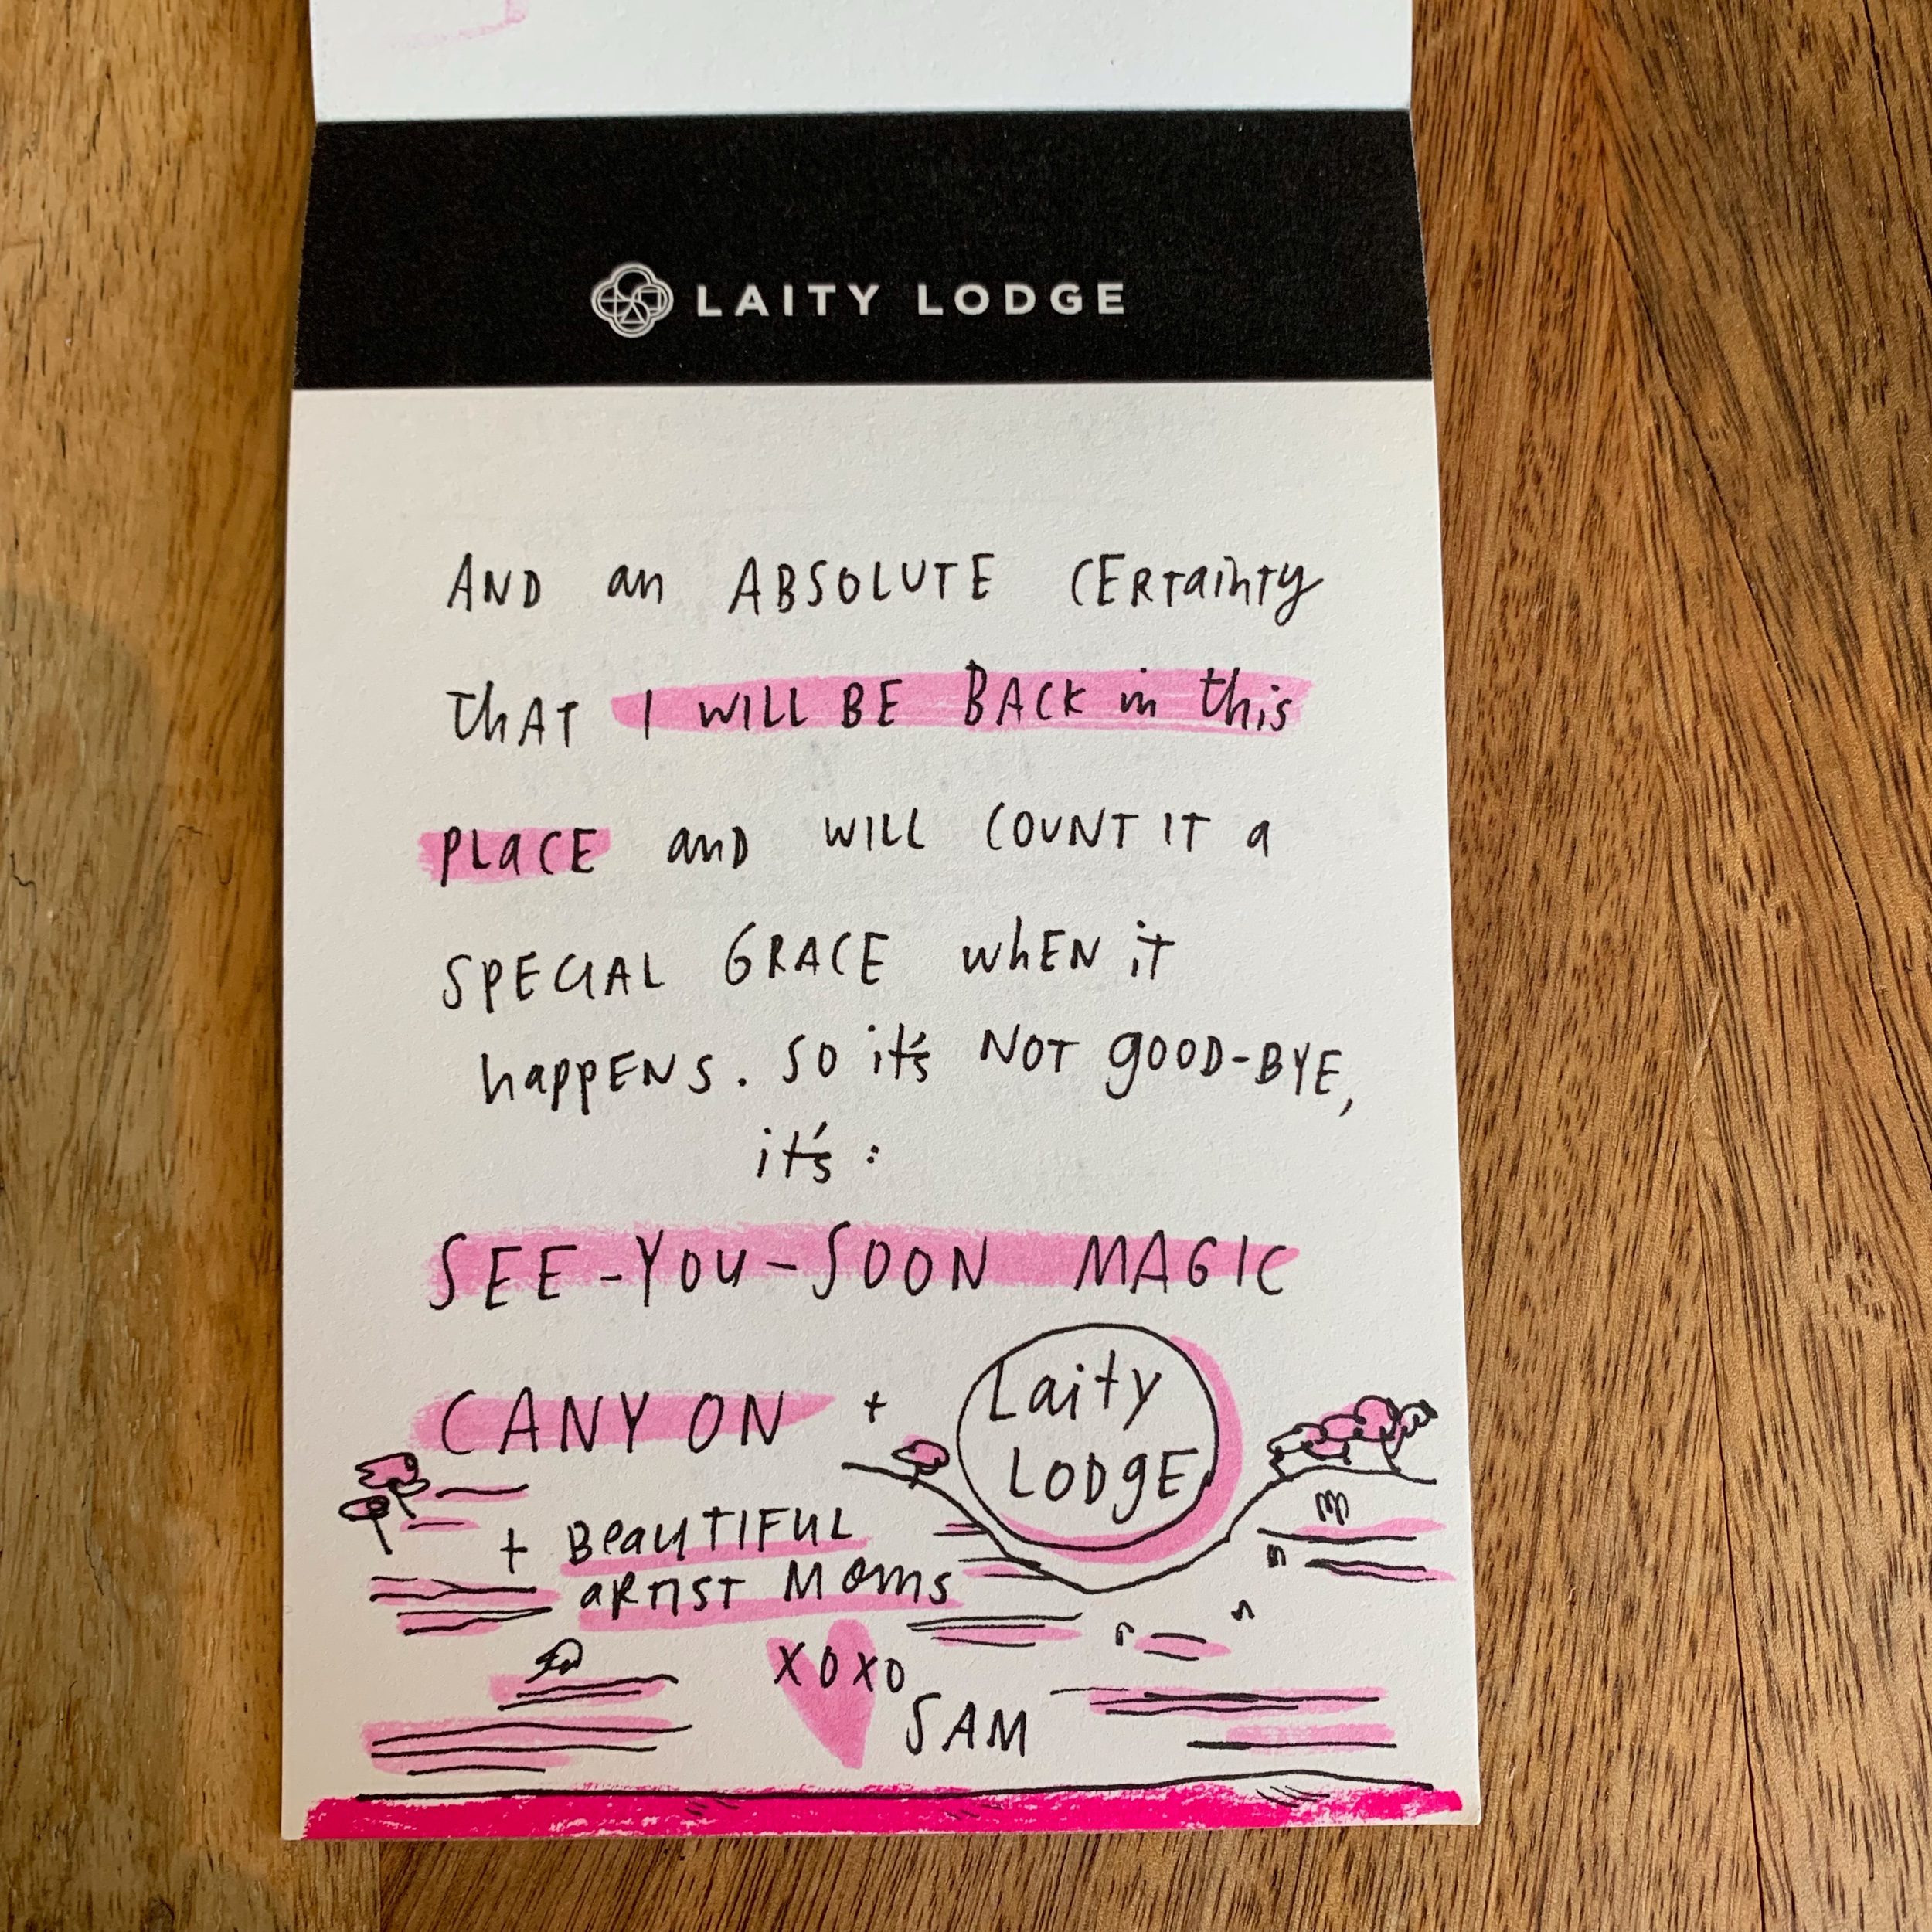 LAITY LODGE
AND an ABSOLUTE CERTainTy
thAT I WILL BE BACK in this
PLaCE anD WILL COUNT IT a
SPECIAL GRACE whEN iT
happENS. SO it's NOT gOOD-BYE,
it's:
SEE-YOU-SOON MAGIC
CANYON + Laity
LODgE
+ BeaUTIFUL
aRTIST MOms
XOXO
SAM